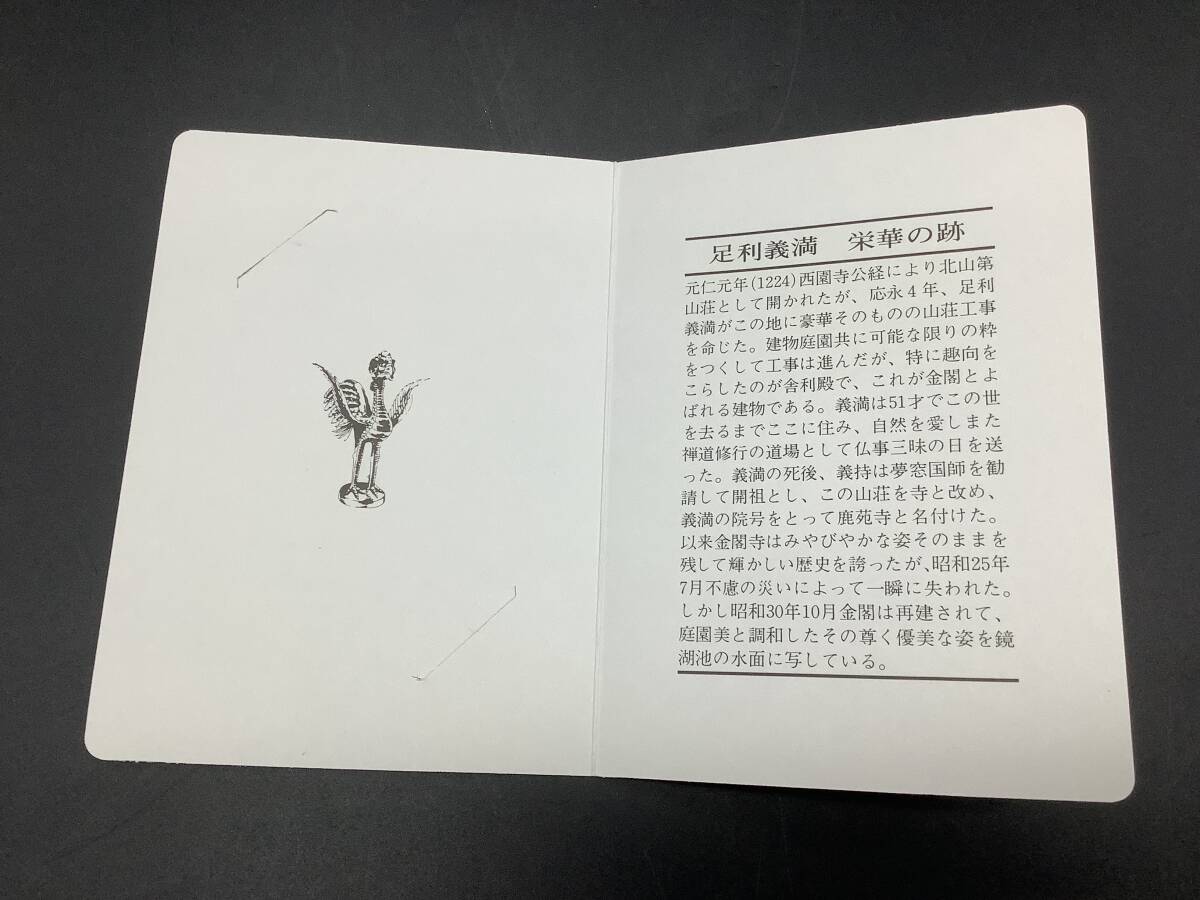 足利義満　栄華の跡
元仁元年(1224)西園寺公経により北山第
山荘として開かれたが、応永4年、足利
義満がこの地に豪華そのものの山荘工事
を命じた。建物庭園共に可能な限りの粋
をつくして工事は進んだが、特に趣向を
こらしたのが舎利殿で、これが金閣とよ
ばれる建物である。義満は51才でこの世
を去るまでここに住み、自然を愛しまた
禅道修行の道場として仏事三昧の日を送
った。義満の死後、義持は夢窓国師を勧
請して開祖とし、この山荘を寺と改め、
義満の院号をとって鹿苑寺と名付けた。
以来金閣寺はみやびやかな姿そのままを
残して輝かしい歴史を誇ったが、昭和25年
7月不慮の災いによって一瞬に失われた。
しかし昭和30年10月金閣は再建されて、
庭園美と調和したその尊く優美な姿を鏡
湖池の水面に写している。